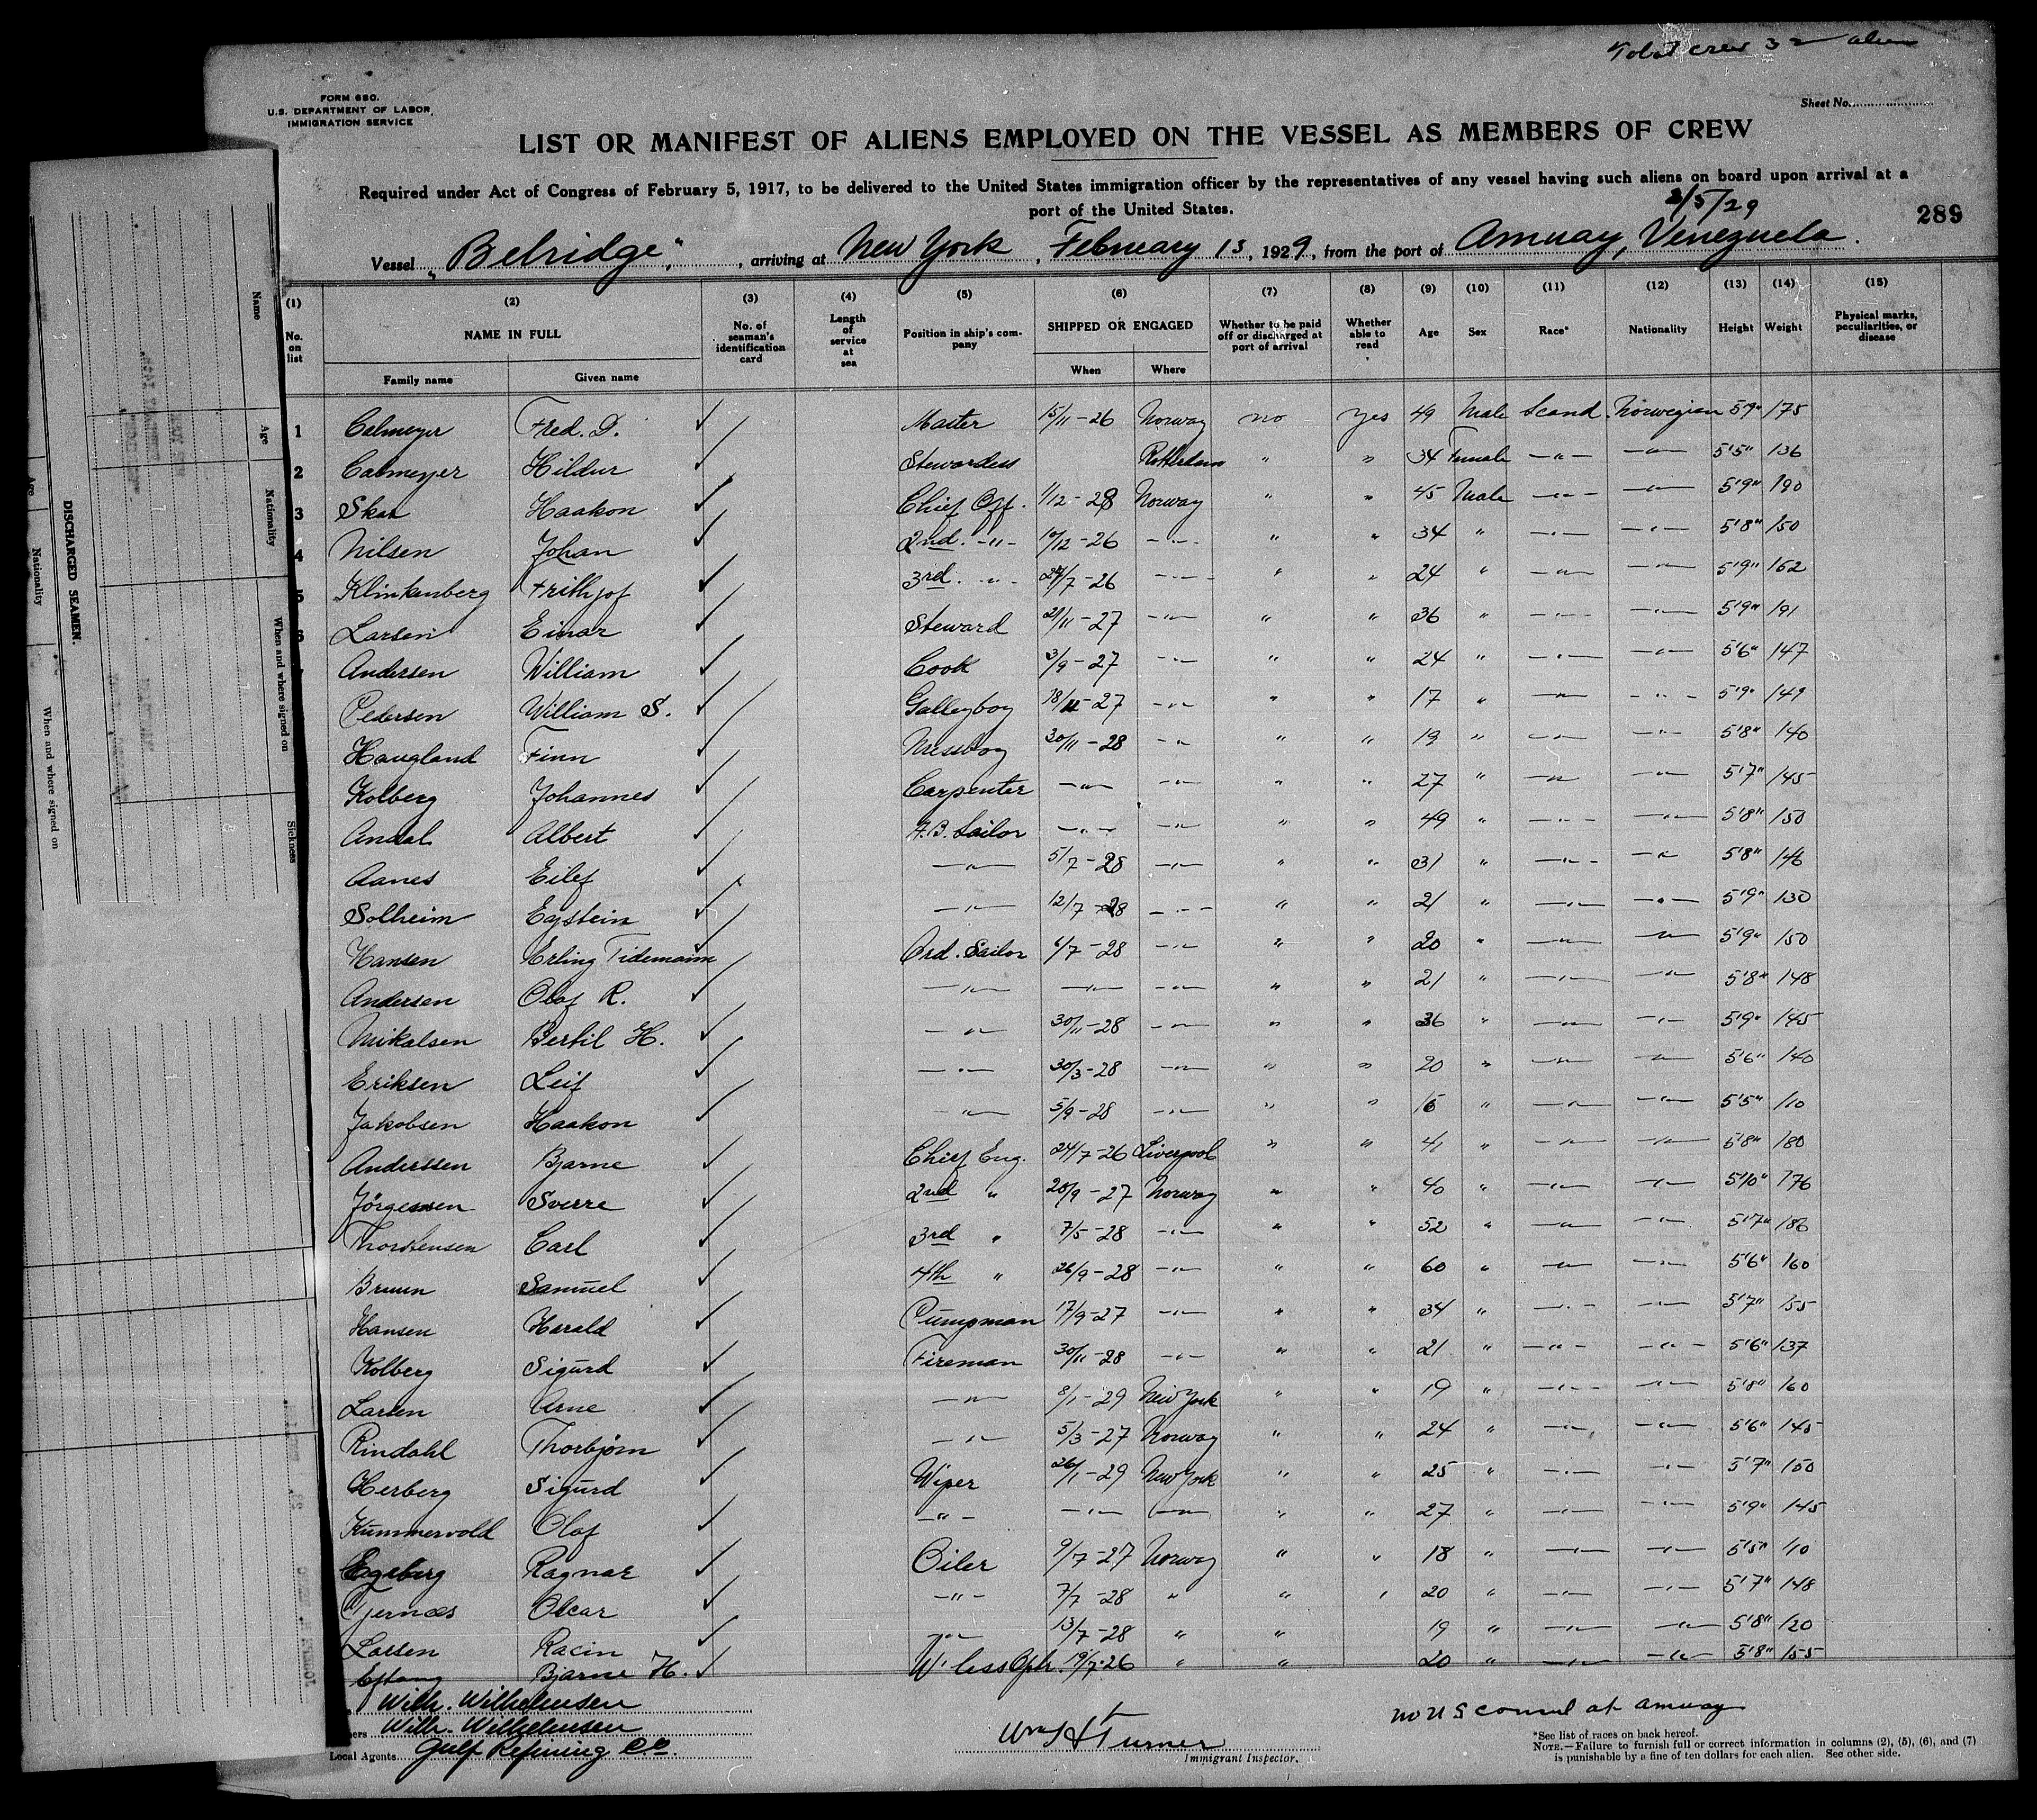 Total crew 32 alien
FORM 680.
U.S. DEPARTMENT OF LABOR,
IMMIGRATION SERVICE
Sheet No.
LIST OR MANIFEST OF ALIENS EMPLOYED ON THE VESSEL AS MEMBERS OF CREW
Required under Act of Congress of February 5, 1917, to be delivered to the United States immigration officer by the representatives of any vessel having such aliens on board upon arrival at a
port of the United States.
2/5/29
289
Vessel "Belridge", arriving at New York, February 13, 1929, from the port of Amuay, Venezuela.
(1) (2) (3) (4) (5) (6) (7) (8) (9) (10) (11) (12) (13) (14) (15)
No. on list NAME IN FULL No. of seaman's identification card Length of service at sea Position in ship's company SHIPPED OR ENGAGED Whether to be paid off or discharged at port of arrival Whether able to read Age Sex Race* Nationality Height Weight Physical marks, peculiarities, or disease
Family name Given name When Where
1 Calmeyer Fred. D. ✓ Master 15/11-26 Norway no yes 49 Male Scand. Norwegian 5'9" 175
2 Calmeyer Hildur ✓ Stewardess Rotterdam " " 34 Female -"- -"- 5'5" 136
3 Skar Haakon ✓ Chief Off. 1/12-28 Norway " " 45 Male -"- -"- 5'9" 190
4 Nilsen Johan ✓ 2nd. -"- 10/12-26 -"- " " 34 " -"- -"- 5'8" 150
5 Klinkenberg Frithjof ✓ 3rd. -"- 24/7-26 -"- " " 24 " -"- -"- 5'9" 162
6 Larsen Einar ✓ Steward 21/11-27 -"- " " 36 " -"- -"- 5'9" 191
Andersen William ✓ Cook 3/9-27 -"- " " 24 " -"- -"- 5'6" 147
Pedersen William S. ✓ Galleyboy 18/11-27 -"- " " 17 " -"- -"- 5'9" 149
Haugland Finn ✓ Messboy 30/11-28 -"- " " 19 " -"- -"- 5'8" 140
Kolberg Johannes ✓ Carpenter -"- -"- " " 27 " -"- -"- 5'7" 145
Andal Albert ✓ A.B. Sailor -"- -"- " " 49 " -"- -"- 5'8" 150
Aanes Eilef ✓ -"- 5/7-28 -"- " " 31 " -"- -"- 5'8" 146
Solheim Eystein ✓ -"- 12/7-28 -"- " " 21 " -"- -"- 5'9" 130
Hansen Erling Tidemann ✓ Ord. Sailor 6/7-28 -"- " " 20 " -"- -"- 5'9" 150
Andersen Olaf R. ✓ -"- -"- -"- " " 21 " -"- -"- 5'8" 148
Mikalsen Bertil H. ✓ -"- 30/11-28 -"- " " 36 " -"- -"- 5'9" 145
Eriksen Leif ✓ -"- 30/3-28 -"- " " 20 " -"- -"- 5'6" 140
Jakobsen Haakon ✓ -"- 5/9-28 -"- " " " -"- -"- 5'5" 110
Anderssen Bjarne ✓ Chief Eng. 24/7-26 Liverpool " " 41 " -"- -"- 5'8" 180
Jörgensen Sverre ✓ 2nd " 28/9-27 Norway " " 40 " -"- -"- 5'10" 176
Thorstensen Carl ✓ 3rd " 7/5-28 -"- " " 52 " -"- -"- 5'7" 186
Bruun Samuel ✓ 4th " 26/9-28 -"- " " 60 " -"- -"- 5'6" 160
Hansen Harald ✓ Pumpman 17/9-27 -"- " " 34 " -"- -"- 5'7" 155
Kolberg Sigurd ✓ Fireman 30/11-28 -"- " " 21 " -"- -"- 5'6" 137
Larsen Arne ✓ -"- 8/1-29 New York " " 19 " -"- -"- 5'8" 160
Rindahl Thorbjørn ✓ -"- 5/3-27 Norway " " 24 " -"- -"- 5'6" 145
Herberg Sigurd ✓ Wiper 26/1-29 New York " " 25 " -"- -"- 5'7" 150
Kummervold Olaf ✓ -"- -"- -"- " " 27 " -"- -"- 5'9" 145
Engeberg Ragnar ✓ Oiler 9/7-27 Norway " " 18 " -"- -"- 5'5" 110
Tjernæs Oscar ✓ -"- 7/7-28 " " " 20 " -"- -"- 5'7" 148
Larsen Racin ✓ -"- 13/7-28 " " 19 " -"- -"- 5'8" 120
Bjarne H. ✓ W'less Optr. 19/7-26 " " 20 " -"- -"- 5'8" 155
Wilh. Wilhelmsen
Wilh. Wilhelmsen
Local Agents Gulf Refining Co.
Wm H Turner
Immigrant Inspector.
no US consul at Amuay
*See list of races on back hereof.
NOTE.—Failure to furnish full or correct information in columns (2), (5), (6), and (7)
is punishable by a fine of ten dollars for each alien. See other side.
DISCHARGED SEAMEN.
Name
Age
Nationality
When and where signed on
Sickness
Age
Nationality
When and where signed on